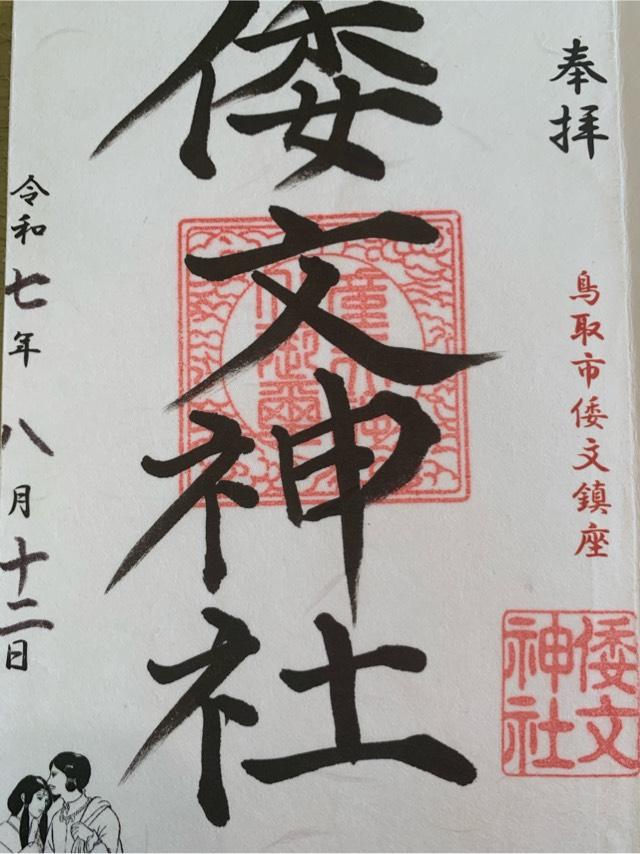 奉拝
鳥取市倭文鎮座
倭文
神社
倭文神社
令和七年八月十二日